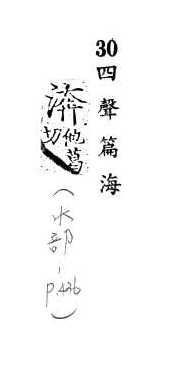 30四聲篇海
他葛
切
(水部,
p.426)